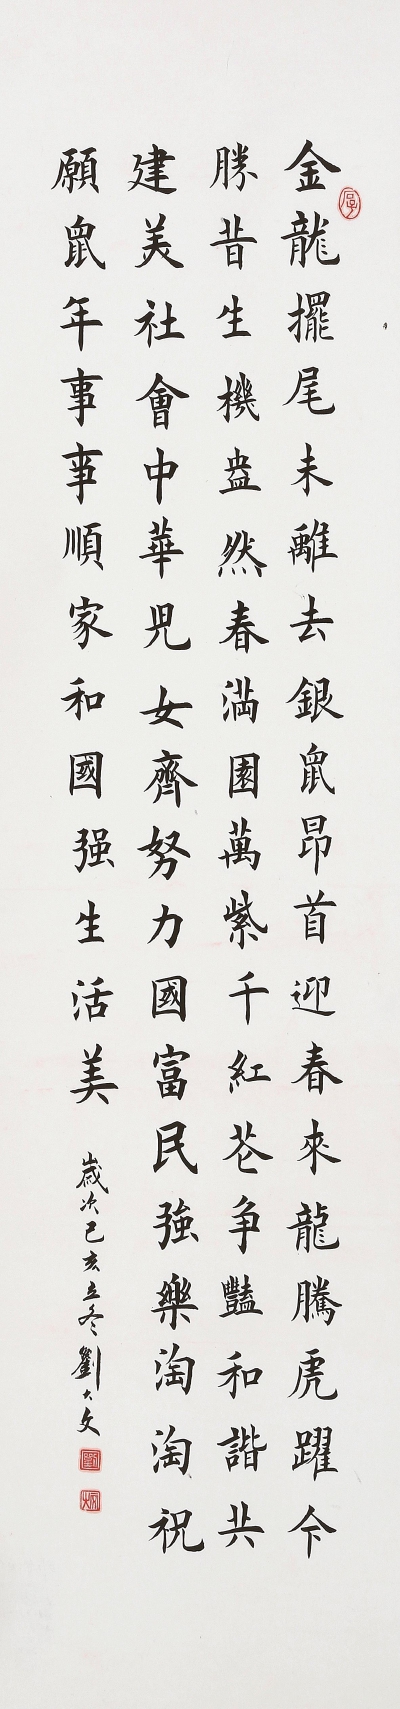 金龍擺尾未離去銀鼠昂首迎春來龍騰虎躍今
勝昔生機盎然春滿園萬紫千紅花争豔和諧共
建美社會中華兒女齊努力國富民強樂淘淘祝
願鼠年事事順家和國强生活美
歲次己亥立冬劉大文